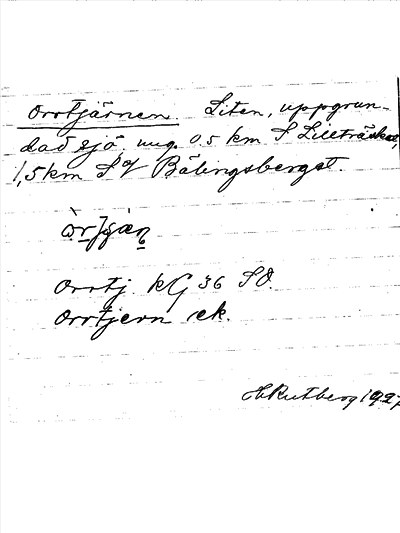 Orrtjärnen. Liten, uppgrun-
dad sjö ung. 0.5 km S Lillträsket,
1,5 km S of Bälingsberget.
Orrtj kG 36 SO.
Orrtjern ek.
H Rutberg 1927